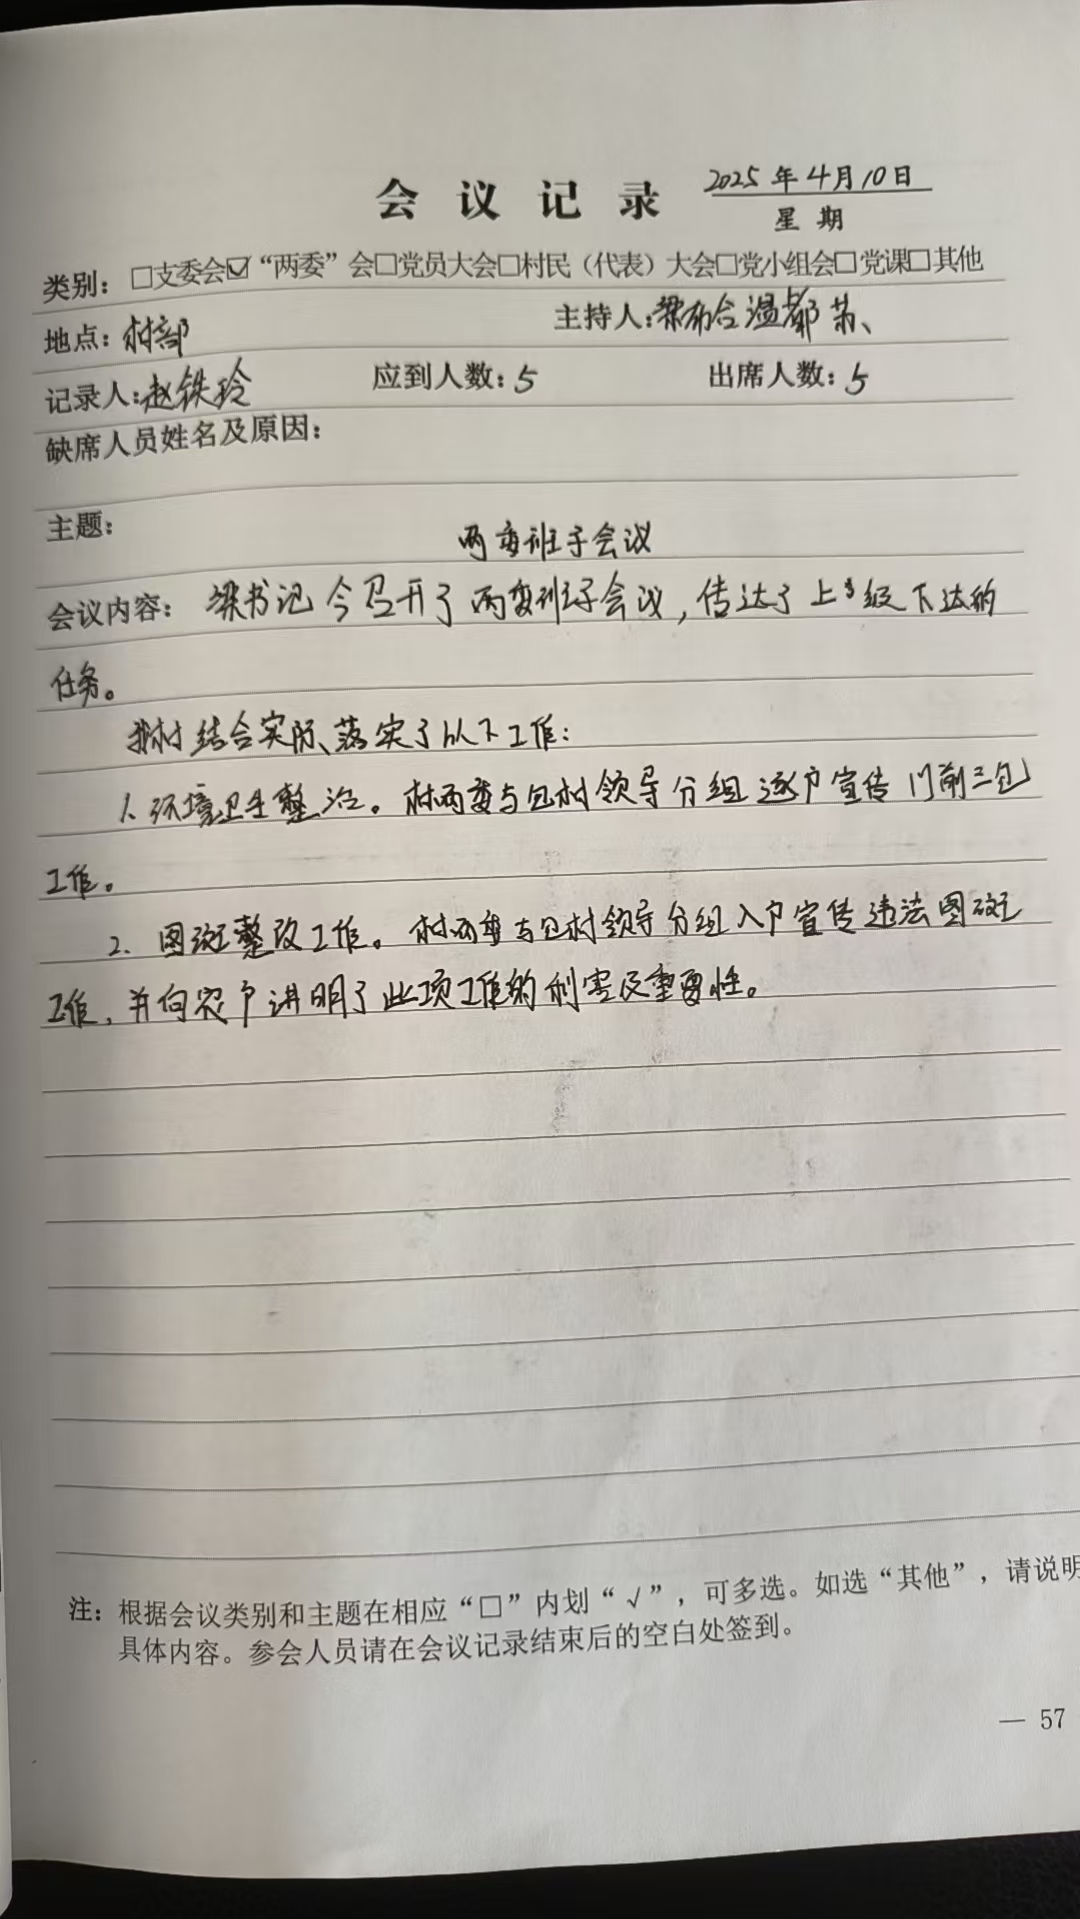 会议记录 2025年4月10日
星期
类别：□支委会☑“两委”会□党员大会□村民（代表）大会□党小组会□党课□其他
地点：村部 主持人：梁布合温都苏
记录人：赵铁玲 应到人数：5 出席人数：5
缺席人员姓名及原因：
主题：
两委班子会议
会议内容：梁书记今召开了两委班子会议，传达了上级下达的
任务。
我村结合实际、落实了以下工作：
1、环境卫生整治。村两委与包村领导分组逐户宣传门前三包
工作。
2. 图斑整改工作。村两委与包村领导分组入户宣传违法图斑
工作，并向农户讲明了此项工作的利害及重要性。
注：根据会议类别和主题在相应“□”内划“√”，可多选。如选“其他”，请说明
具体内容。参会人员请在会议记录结束后的空白处签到。
— 57